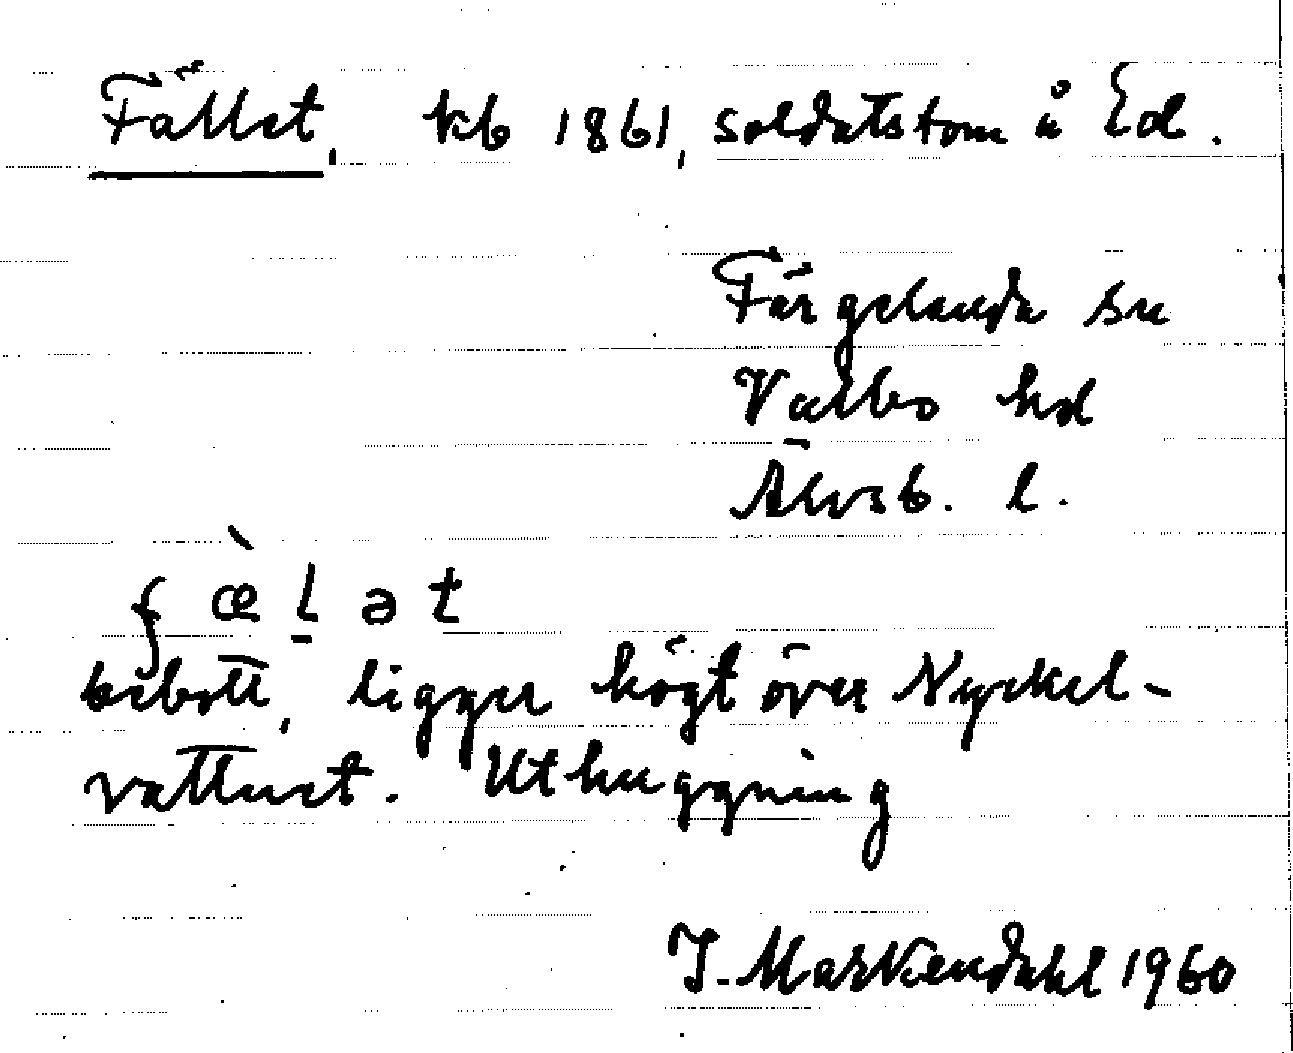 Fället, kb 1861, soldatstom å Ed.
Färgelanda sn
Valbo hd
Älvsb. l.
fæ̀l̠ət
bebott, ligger högt över Nyckel-
vattnet. Uthuggning
J. Markendahl 1960